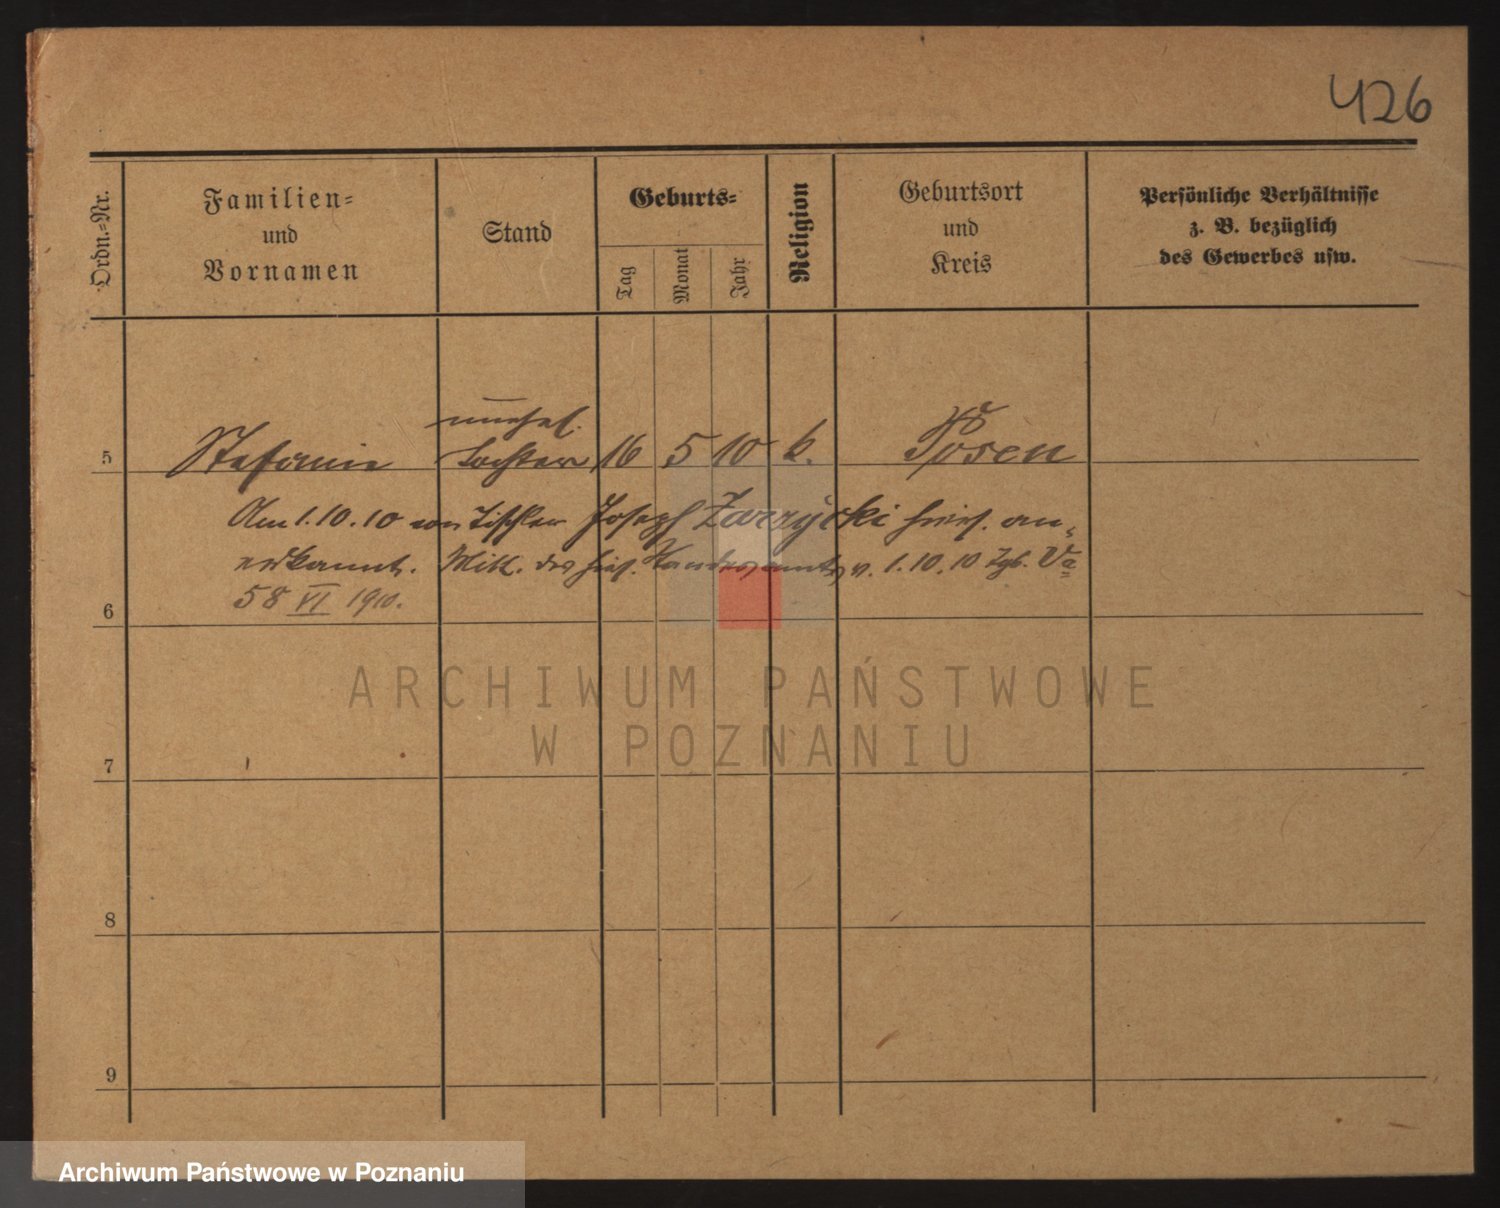 426
Ordn.-Nr.
Familien-
und
Vornamen
Stand
Geburts-
Tag
Monat
Jahr
Religion
Geburtsort
und
Kreis
Persönliche Verhältnisse
z. B. bezüglich
des Gewerbes usw.
unehel.
5 Stefanie Tochter 16 5 10 k. Posen
Am 1.10.10 von Tischler Joseph Zarzycki hies. an-
erkannt. Mitt. des hies. Standesamts v. 1.10.10 Tgb.
6
58 VI 1910.
ARCHIWUM PAŃSTWOWE
W POZNANIU
7
8
9
Archiwum Państwowe w Poznaniu